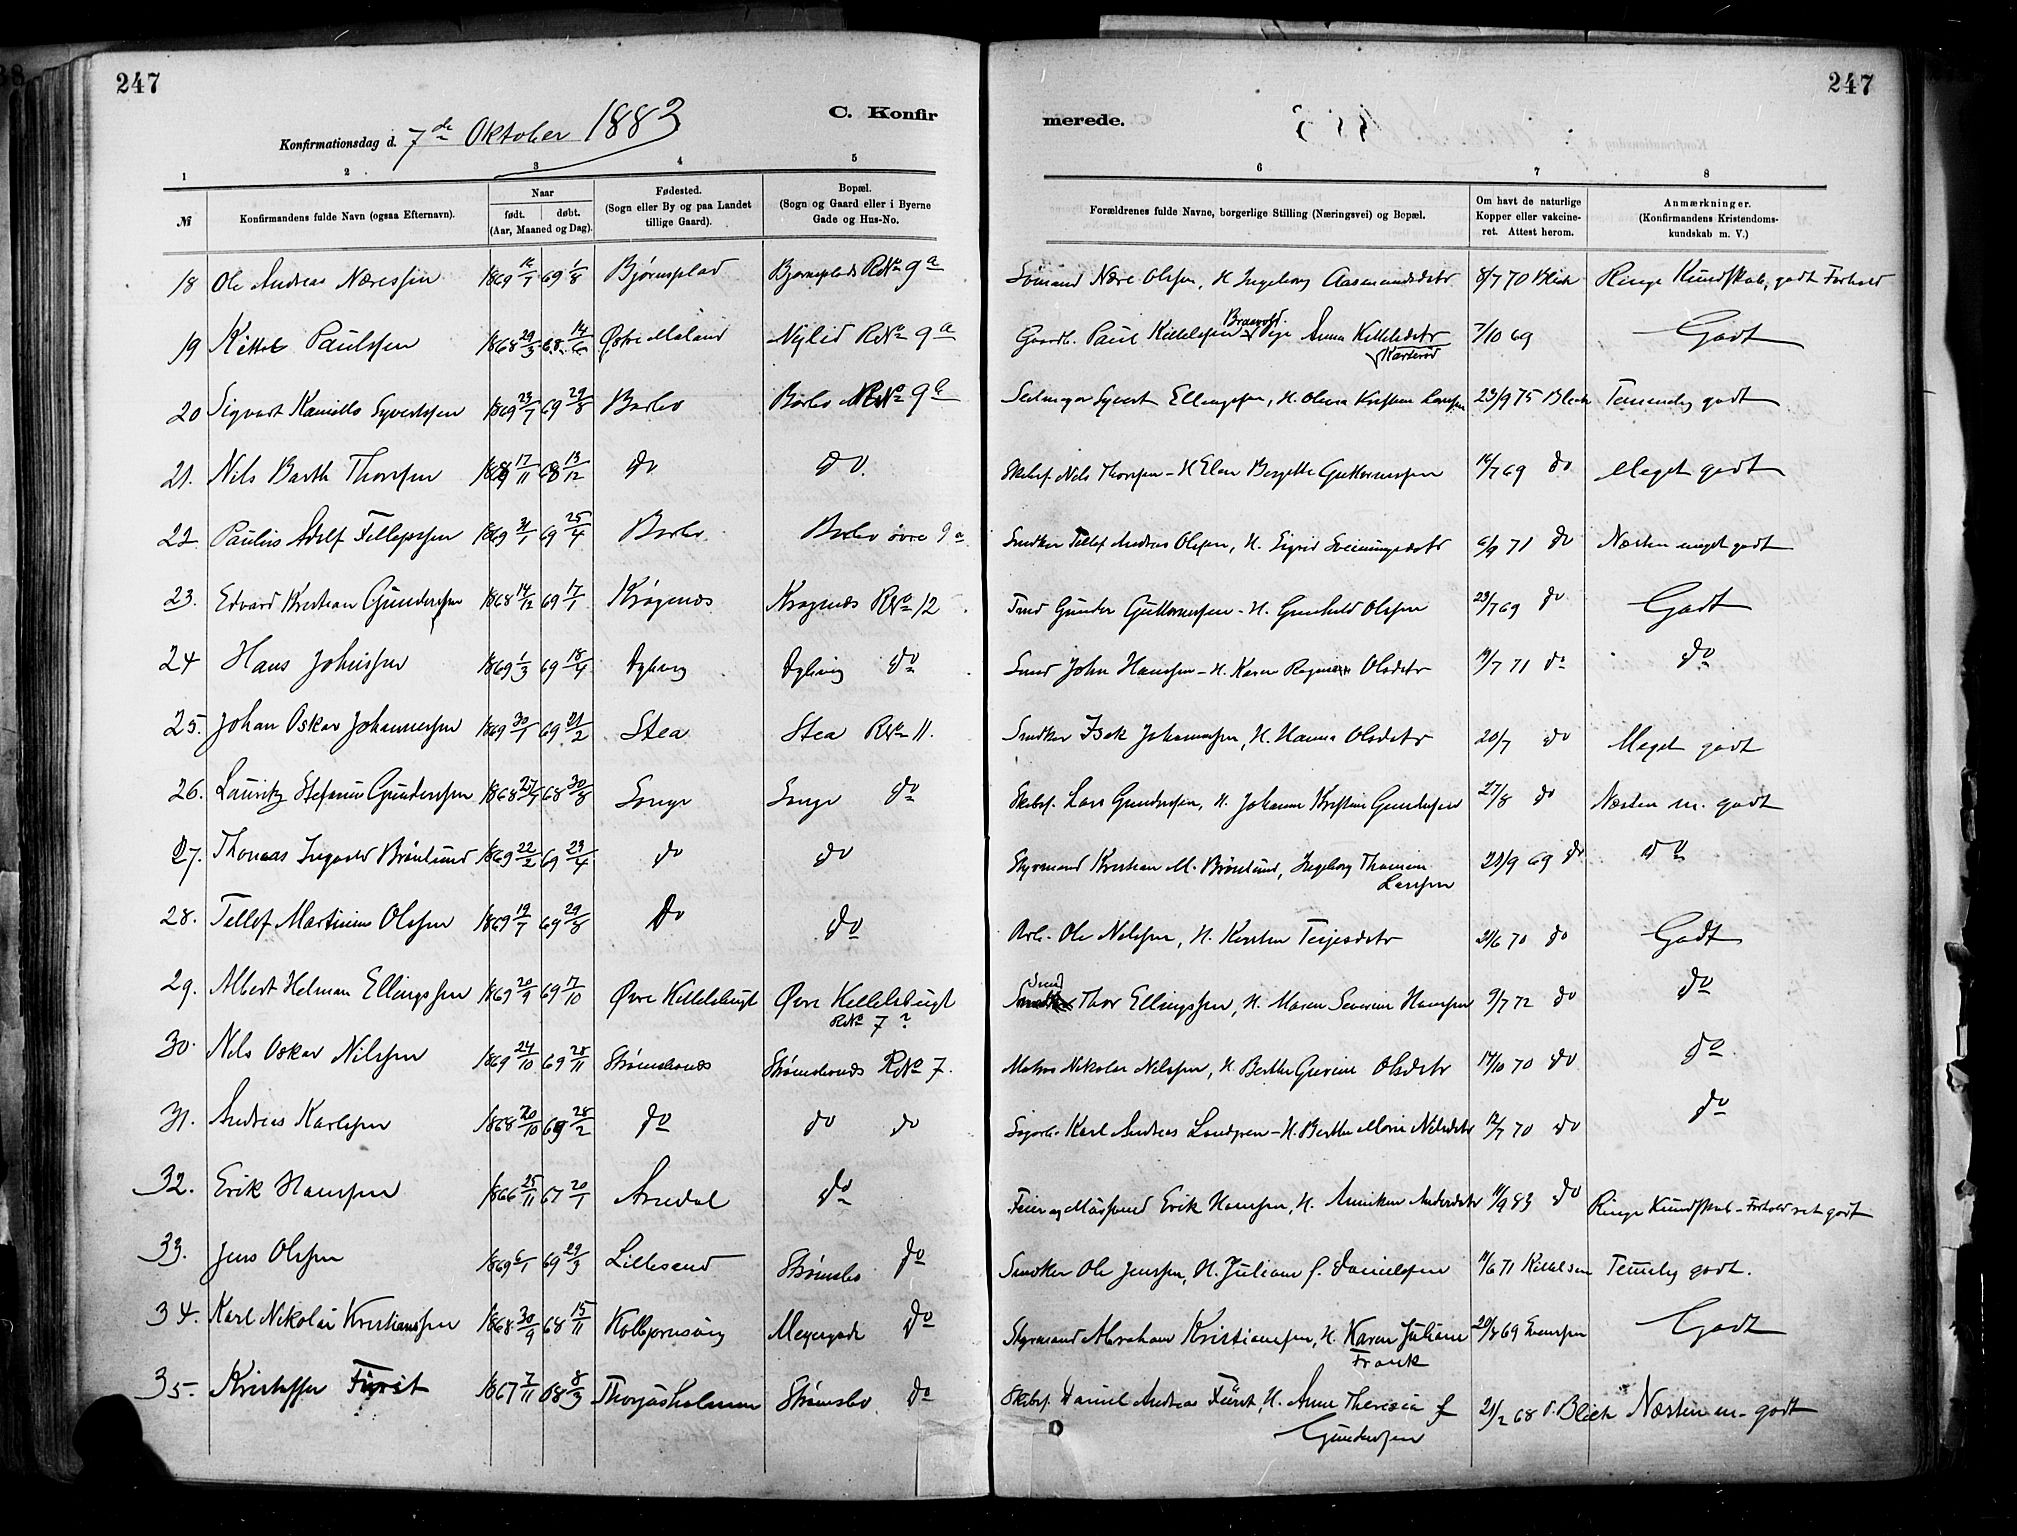 247
247
C. Konfir
merede.
Konfirmationsdag d. 7de Oktober 1883
1 2 3 4 5 6 7 8
№ Konfirmandens fulde Navn (ogsaa Efternavn). Naar født. døbt. (Aar, Maaned og Dag). Fødested. (Sogn eller By og paa Landet tillige Gaard). Bopæl. (Sogn og Gaard eller i Byerne Gade og Hus-No. Forældrenes fulde Navne, borgerlige Stilling (Næringsvei) og Bopæl. Om havt de naturlige Kopper eller vakcineret. Attest herom. Anmærkninger. (Konfirmandens Kristendomskundskab m. V.)
18 Ole Andreas Næressen 1869 69 1/8 Bjørnsplad Bjørnsplads 9a Sømand Nære Olsen, H. Ingeborg Aasmundsdtr 8/7 70 Blich Ringe Kundskab, godt Forhold
19 Kittel Paulssen 1868 29/3 68 14/6 Østre Møland Nylid 9a Gaardb. Paul Kittelssen Braavold Pige Anna Kittelsdtr 7/10 69 Godt
20 Sigvart Kamillo Syvertssen 1869 23/7 69 29/8 Barbo Barbo 9a Syvert Ellingssen, H. Olava Kristine Larssen 23/9 75 Blich Temmelig godt
21. Nils Barth Thorssen 1868 17/11 68 13/12 do do. Skibsf. Nils Thorssen - H. Elen Birgitte Guttormssen 16/7 69 do Meget godt
22 Paulus Adolf Tellefssen 1869 31/1 69 25/4 Barbo Barbo øvre 9a Snedker Tellef Andreas Olssen, H. Sigrid Sveinungsdtr 6/9 71 do Næsten meget godt
23. Edvard Kristian Gunderssen 1868 14/12 69 17/1 Krøgenæs Krøgenæs 12 Tmd Gunder Guttormssen - H. Gunhild Olssen 23/7 69 do Godt
24 Hans Johnssen 1869 1/3 69 18/4 Dyhvig Dyhvig do Smed John Hanssen - H. Karen Olsdtr 19/7 71 do do
25. Johan Oskar Johannessen 1869 30/1 69 21/2 Stea Stea 11. Snedker Isak Johannessen, H. Hanna Olsdtr 20/7 do Meget godt
26. Lauritz Stefanus Gunderssen 1868 68 30/8 Songe Songe do Skibsf. Lars Gunderssen, H. Johanne Kristine Gunderssen 27/8 do Næsten m. godt
27. Thomas Ingvald Brønlund 1869 22/2 69 23/4 do do Styrmand Kristian M. Brønlund, Ingeborg Thomine Larssen 21/9 69 do do
28. Tellef Martinius Olssen 1869 19/7 69 29/8 do do Arb. Ole Nilssen, H. Kirsten Terjesdtr 21/6 70 do Godt
29. Albert Helman Ellingssen 1869 20/9 69 17/10 Øvre Kittelsbugt Øvre Kittelsbugt 7 Smed Thor Ellingssen, H. Maren Severine Hanssen 9/7 72 do do
30. Nils Oskar Nilssen 1869 24/10 69 28/11 Strømsbonæs Strømsbonæs 7. Matros Nikolai Nilssen, H. Berthe Gurine Olsdtr 14/10 70 do do
31. Andreas Karlssen 1868 20/10 69 28/2 do do do Karl Andreas Landgren - H. Berthe Marie Nilsdtr 12/7 70 do do
32. Erik Hanssen 1866 25/11 67 20/1 Arendal do Feier og Maursmed Erik Hanssen, H. Anniken Andersdtr 11/9 83 do Ringe Kundskab - Forhold ret godt
33. Jens Olssen 1869 6/1 69 29/3 Lillesand Strømsbo do Snedker Ole Jenssen, H. Juliane f. Danielssen 11/6 71 Temmelig godt.
34. Karl Nikolai Kristianssen 1868 30/9 68 15/11 Kolbjørnsvig Meyergade do Styrmand Abraham Kristianssen, H. Karen Juliane Frank 20/8 69 Evenssen Godt
35. Kristoffer Fürst 1867 7/11 68 8/3 Thorjusholmen Strømsbo do Skibsf. Daniel Andreas Fürst, H. Anne Theresia f Gunderssen 21/2 68 Blich Næsten m. godt